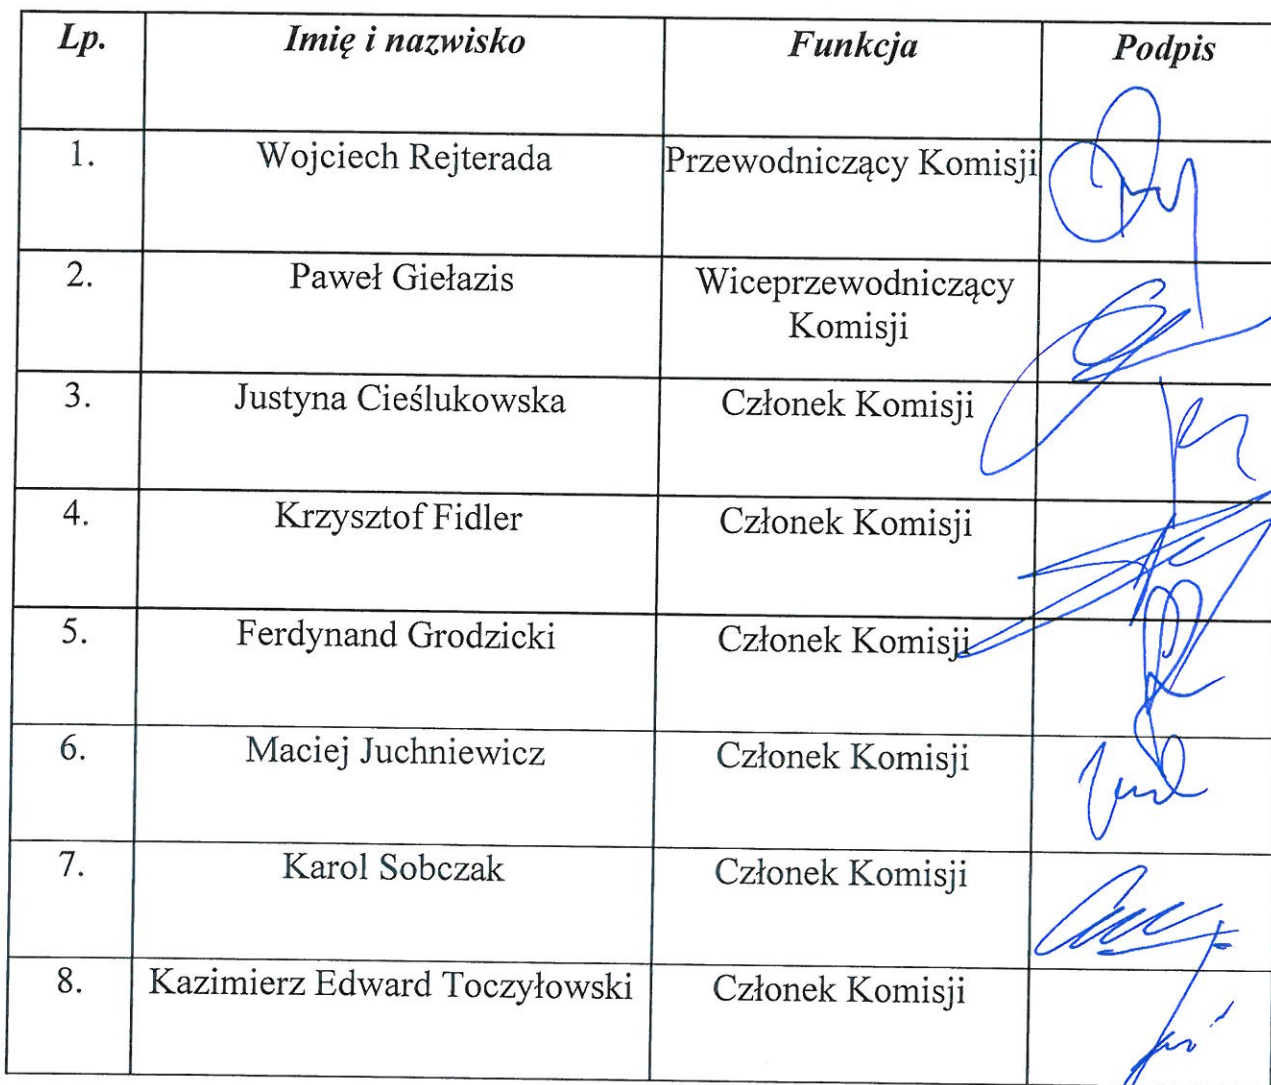 Lp. Imię i nazwisko Funkcja Podpis
1. Wojciech Rejterada Przewodniczący Komisji
2. Paweł Giełazis Wiceprzewodniczący
Komisji
3. Justyna Cieślukowska Członek Komisji
4. Krzysztof Fidler Członek Komisji
5. Ferdynand Grodzicki Członek Komisji
6. Maciej Juchniewicz Członek Komisji
7. Karol Sobczak Członek Komisji
8. Kazimierz Edward Toczyłowski Członek Komisji